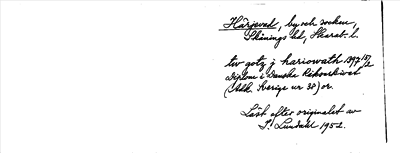 Härjevad, by och socken,
Skånings hd, Skarab. l.
tw gotz j hariowath 1397 15/2
Diplom i Danska Riksarkivet
(Afd. Sverige nr 38) or.
Läst efter originalet av
I. Lundahl 1952.